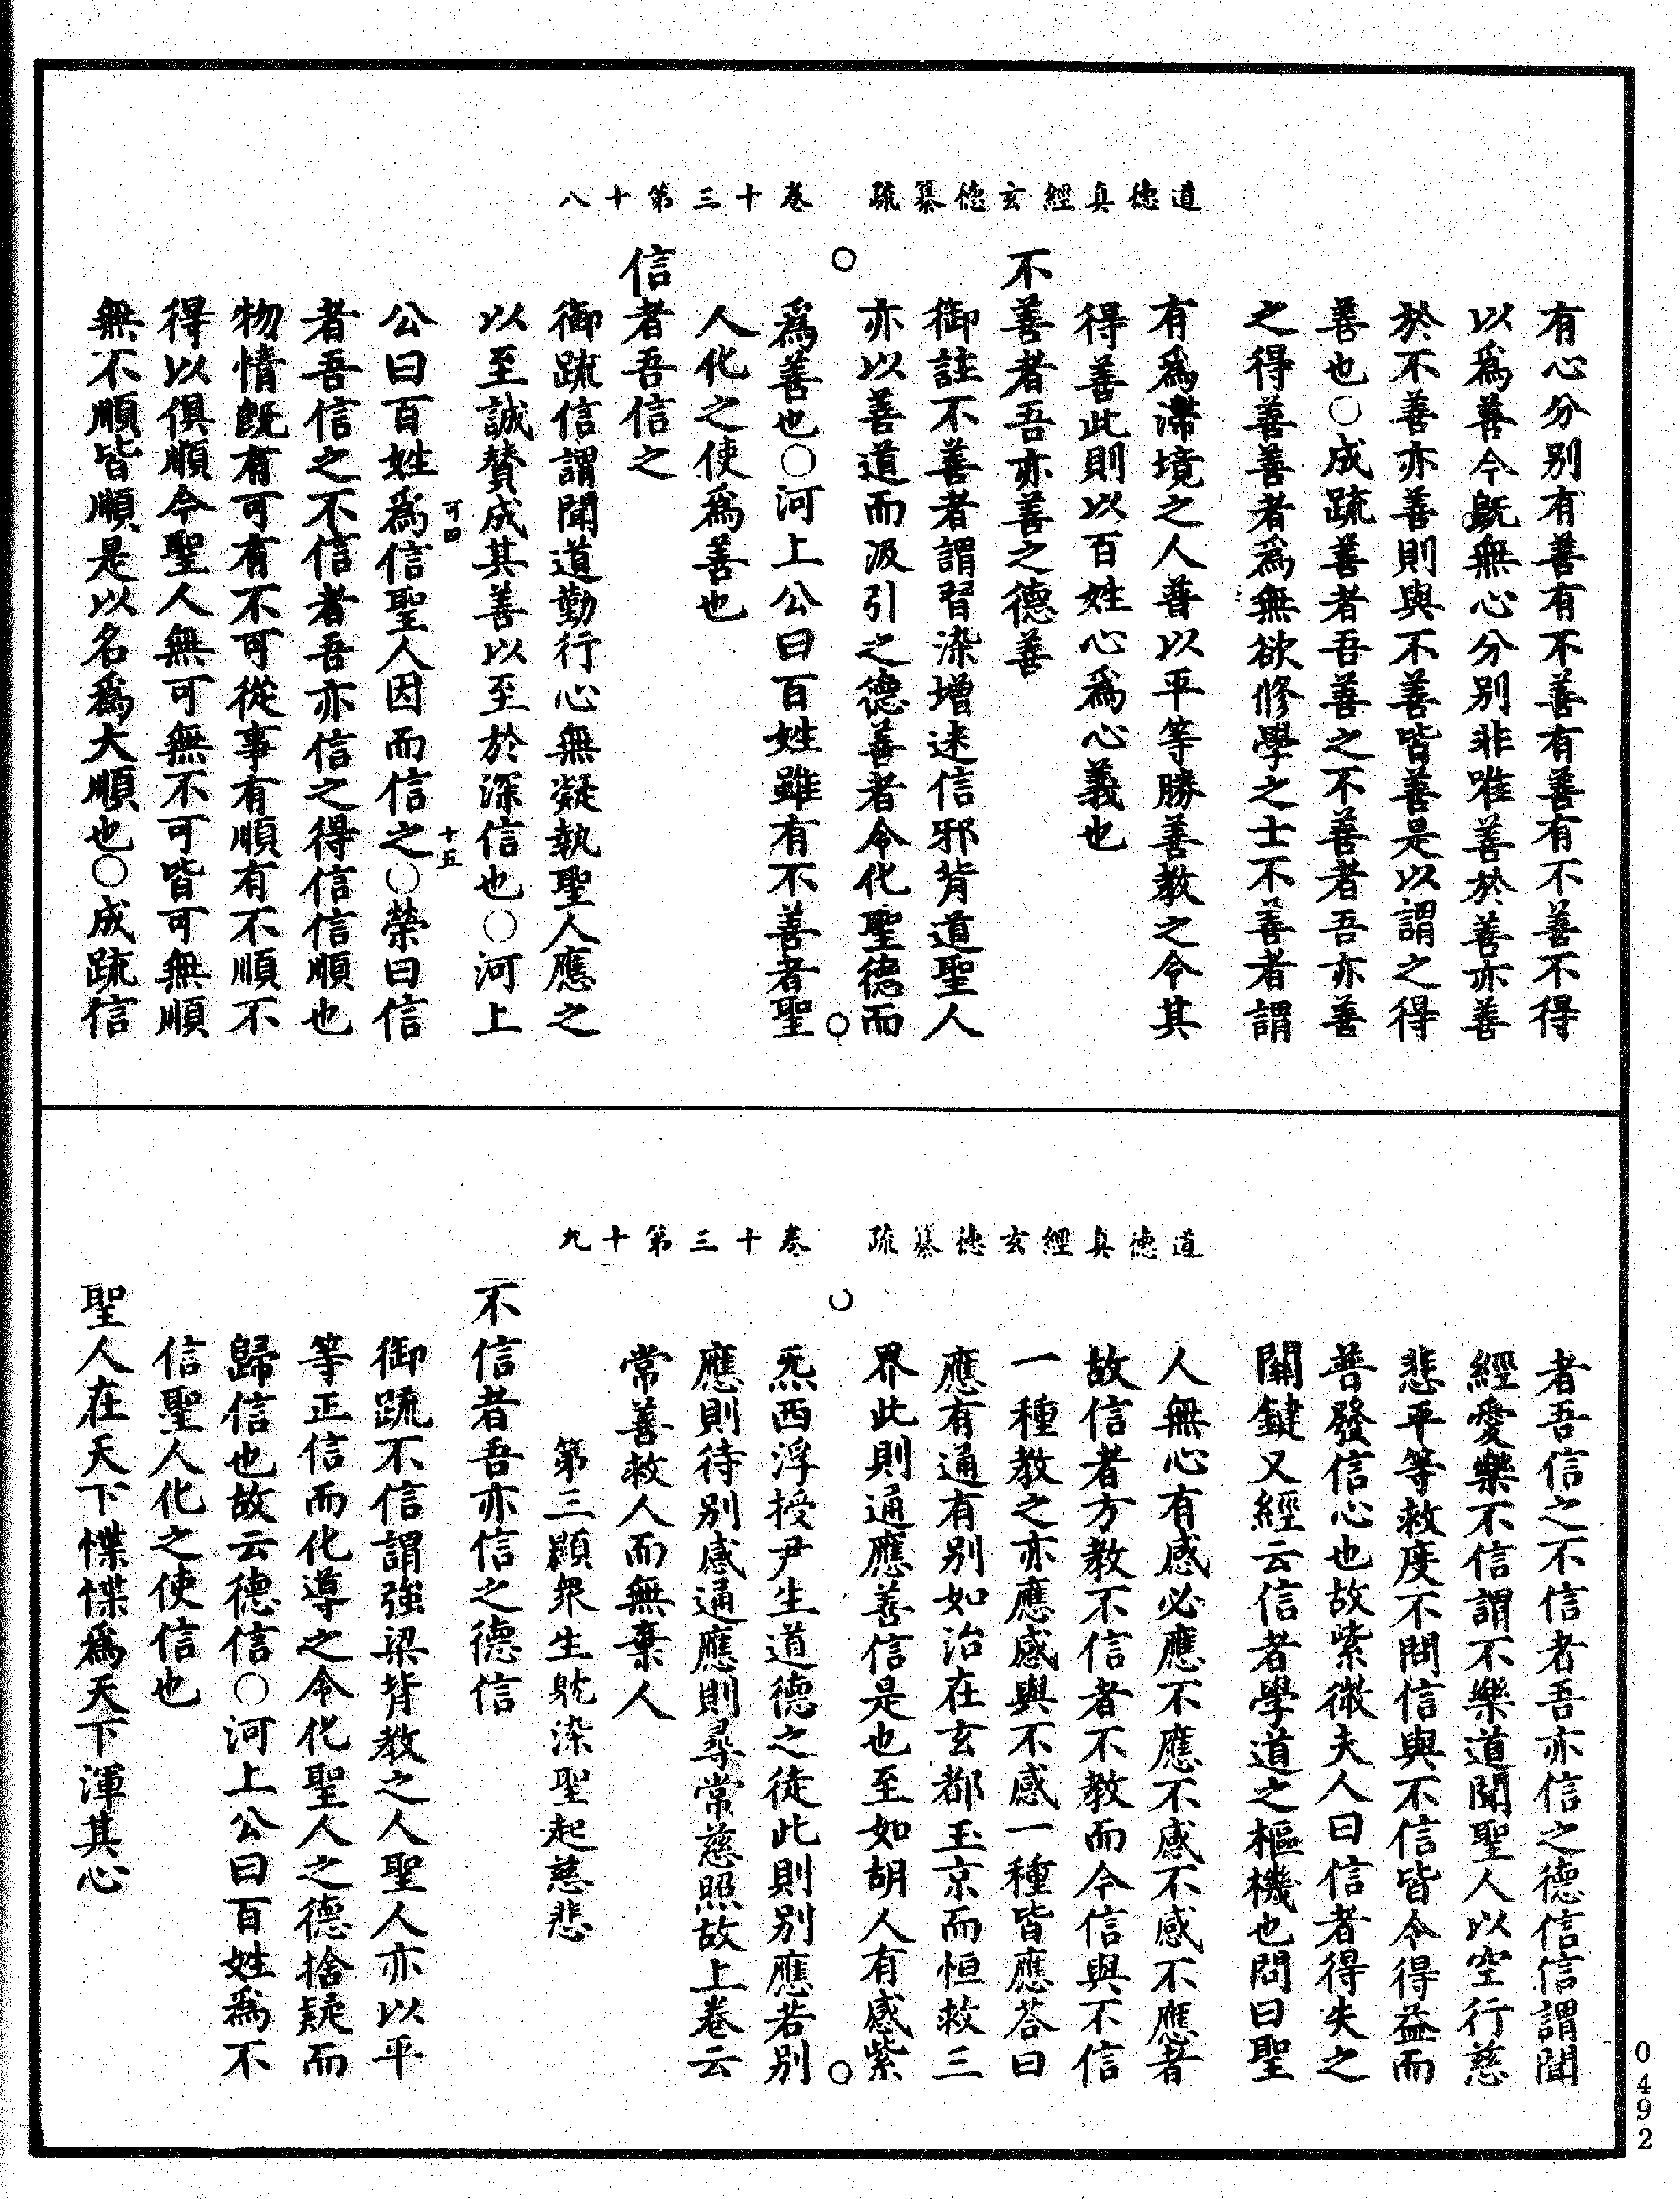 道德真經玄德纂疏　卷十三第十八
有心分別有善有不善有善有不善不得
以爲善今旣無心分別非唯善於善亦善
於不善亦善則與不善皆善是以謂之得
善也○成疏善者吾善之不善者吾亦善
之得善善者爲無欲修學之士不善者謂
有爲滯境之人普以平等勝善教之令其
得善此則以百姓心爲心義也
不善者吾亦善之德善
御註不善者謂習染增迷信邪背道聖人
亦以善道而汲引之德善者令化聖德而
爲善也○河上公曰百姓雖有不善者聖
人化之使爲善也
信者吾信之
御疏信謂聞道勤行心無凝執聖人應之
以至誠賛成其善以至於深信也○河上
可四　十五
公曰百姓爲信聖人因而信之○榮曰信
者吾信之不信者吾亦信之得信信順也
物情旣有可有不可從事有順有不順不
得以俱順今聖人無可無不可皆可無順
無不順皆順是以名爲大順也○成疏信
道德真經玄德纂疏　卷十三第十九
者吾信之不信者吾亦信之德信信謂聞
經愛樂不信謂不樂道聞聖人以空行慈
悲平等救度不問信與不信皆令得益而
善發信心也故紫微夫人曰信者得失之
關鍵又經云信者學道之樞機也問曰聖
人無心有感必應不應不感不感不應者
故信者方教不信者不教而今信與不信
一種教之亦應感與不感一種皆應荅曰
應有通有別如治在玄都玉京而恒救三
界此則通應善信是也至如胡人有感紫
炁西浮授尹生道德之徒此則別應若別
應則待別感通應則尋常慈照故上卷云
常善救人而無棄人
第三顯衆生躭染聖起慈悲
不信者吾亦信之德信
御疏不信謂強梁背教之人聖人亦以平
等正信而化導之令化聖人之德捨疑而
歸信也故云德信○河上公曰百姓爲不
信聖人化之使信也
聖人在天下惵惵爲天下渾其心
0492